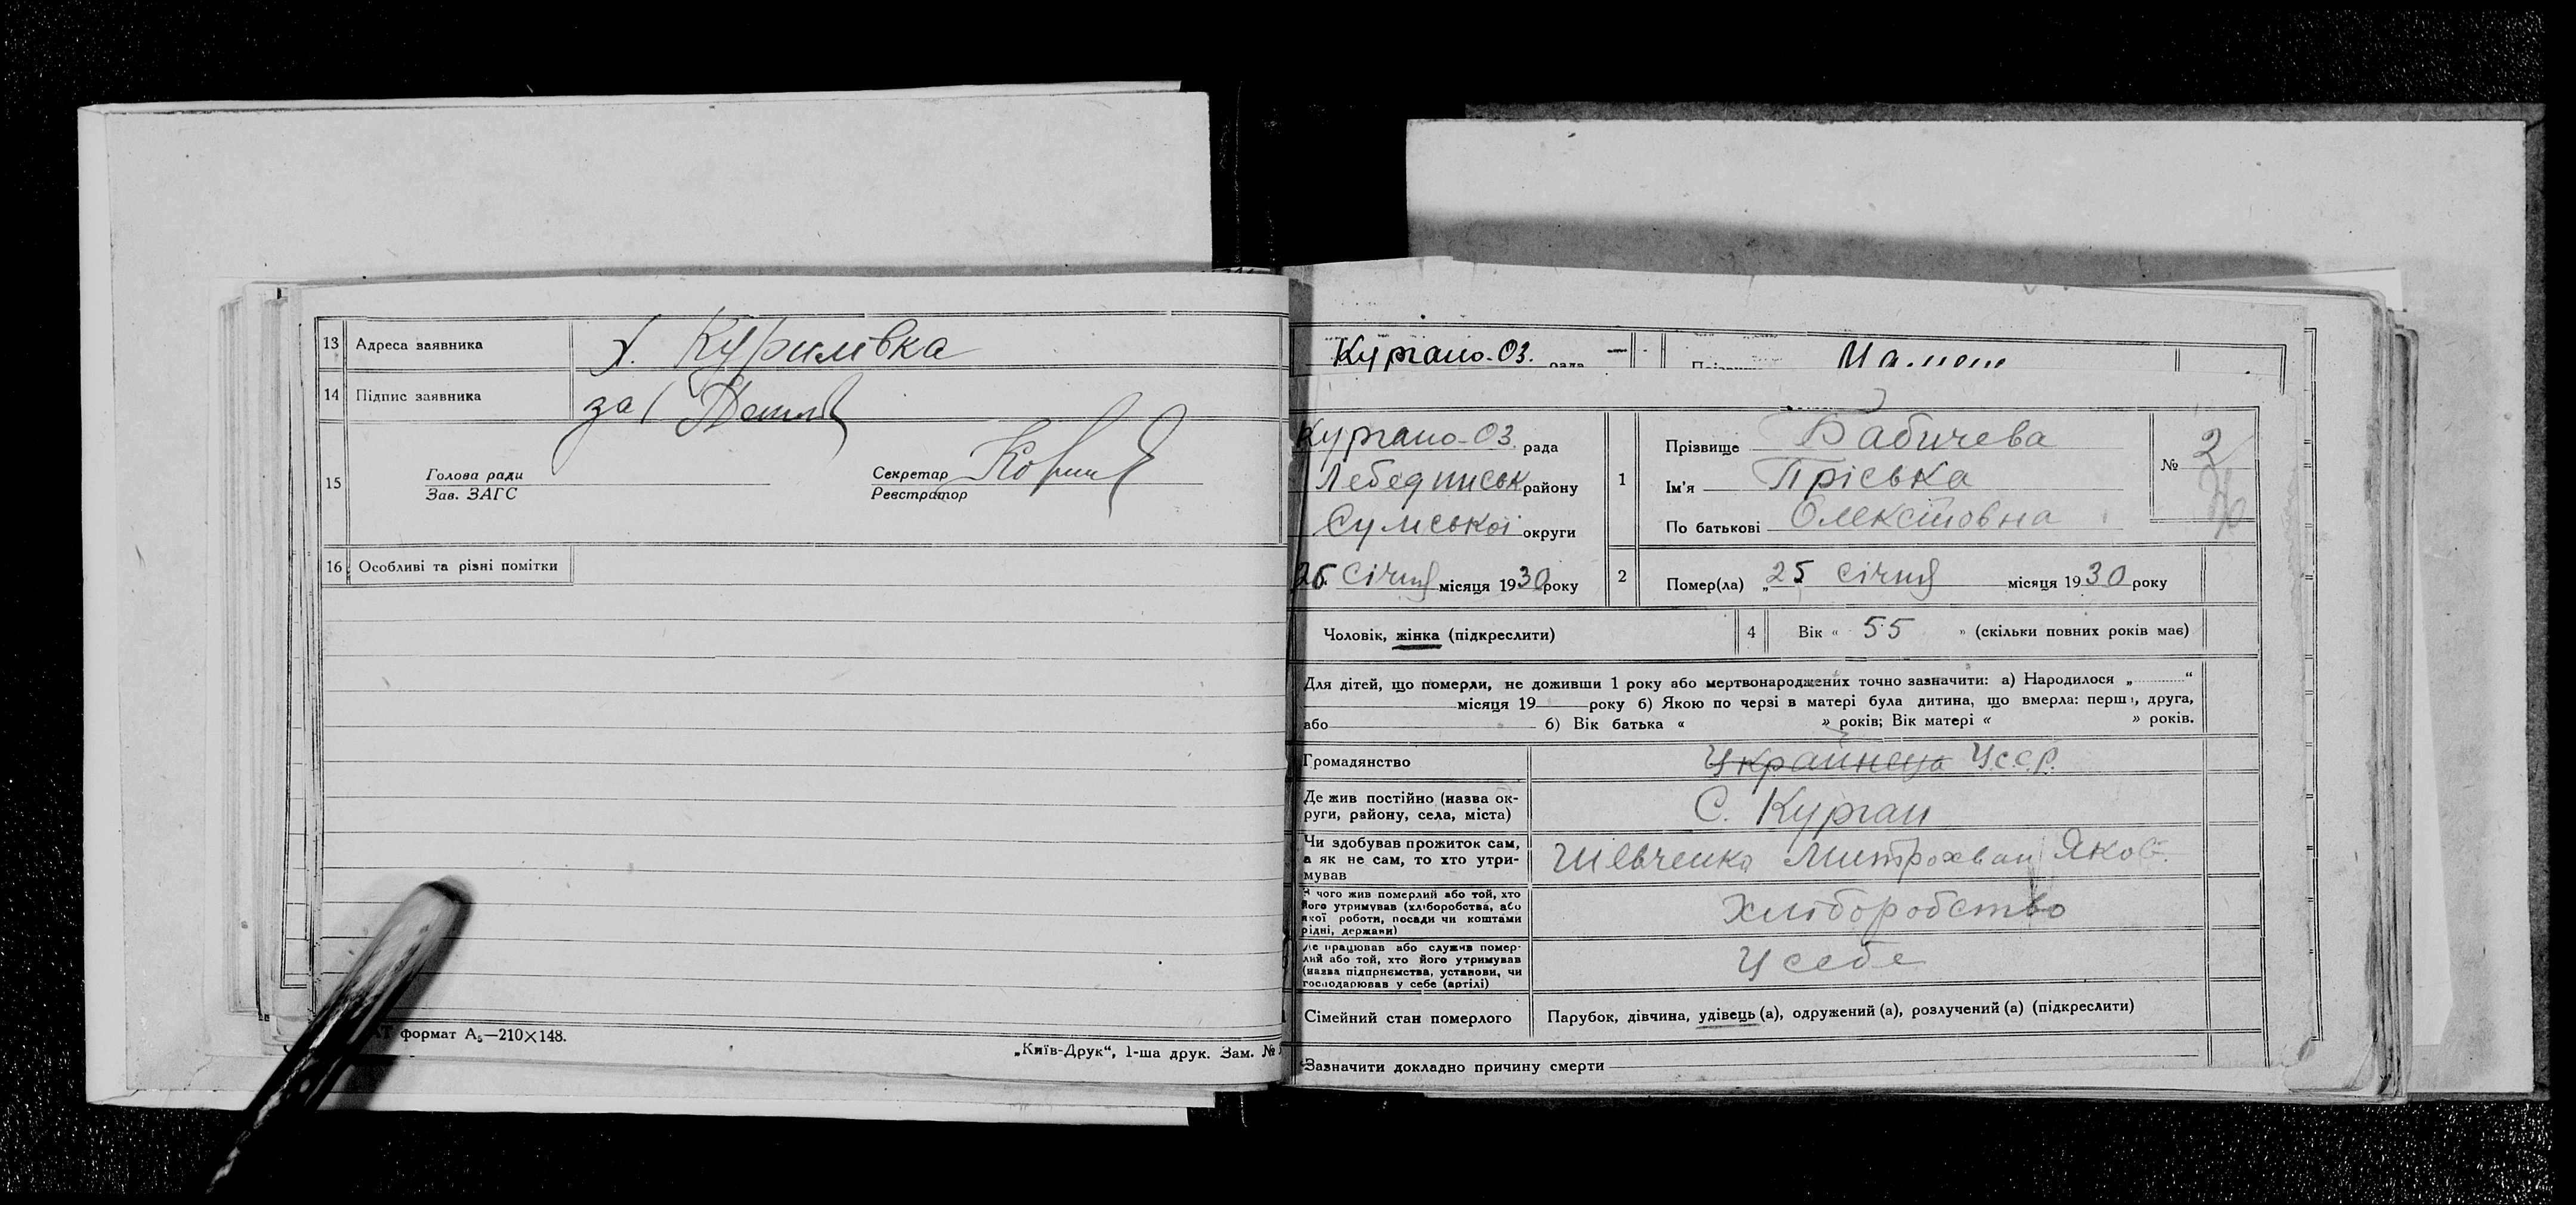 13 Адреса заявника х. Курилівка
14 Підпис заявника за
15 Голова ради
Зав. ЗАГС
Секретар
Реєстратор
16 Особливі та різні помітки
формат А₅—210×148.
„Київ-Друк“, 1-ша друк. Зам. №
Кургано-Оз. рада
Кургано-Оз. рада
Лебединськ району
Сумської округи
26 січня місяця 1930 року
1 Прізвище Бабичева
Ім'я Пріська
По батькові Олексіївна
№ 2
2 Помер(ла) „25 січня місяця 1930 року
Чоловік, жінка (підкреслити)
4 Вік « 55 » (скільки повних років має)
Для дітей, що померли, не доживши 1 року або мертвонароджених точно зазначити: а) Народилося „ “
місяця 19 року б) Якою по черзі в матері була дитина, що вмерла: перша, друга,
або б) Вік батька « » років; Вік матері « » років.
Громадянство Українець У.С.С.Р.
Де жив постійно (назва ок-
руги, району, села, міста) С. Курган
Чи здобував прожиток сам,
а як не сам, то хто утри-
мував Шевченко Митрохван Яков.
З чого жив померлий або той, хто
його утримував (хліборобства, або
якої роботи, посади чи коштами
рідні, держави) Хліборобство
Де працював або служив помер-
лий або той, хто його утримував
(назва підприємства, установи, чи
господарював у себе (артілі) У себе
Сімейний стан померлого Парубок, дівчина, удівець (а), одружений (а), розлучений (а) (підкреслити)
Зазначити докладно причину смерти